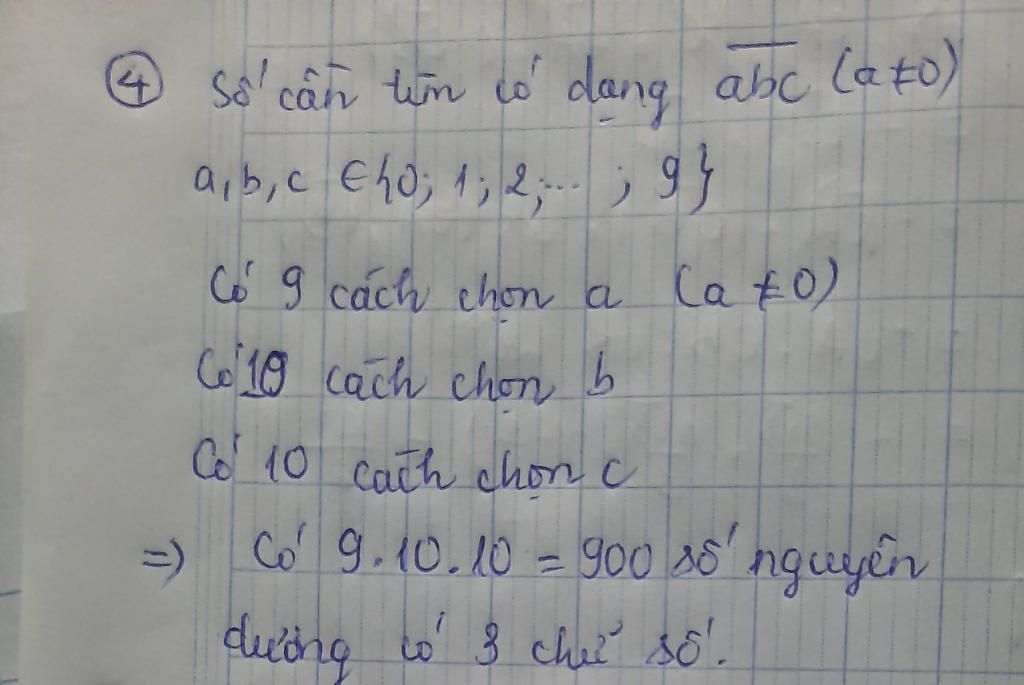 ④ Số cần tìm có dạng \overline{abc} (a≠0)
a, b, c ∈ {0; 1; 2; ... ; 9}
Có 9 cách chọn a (a ≠ 0)
Có 10 cách chọn b
Có 10 cách chọn c
=> Có 9.10.10 = 900 số nguyên
dương có 3 chữ số.